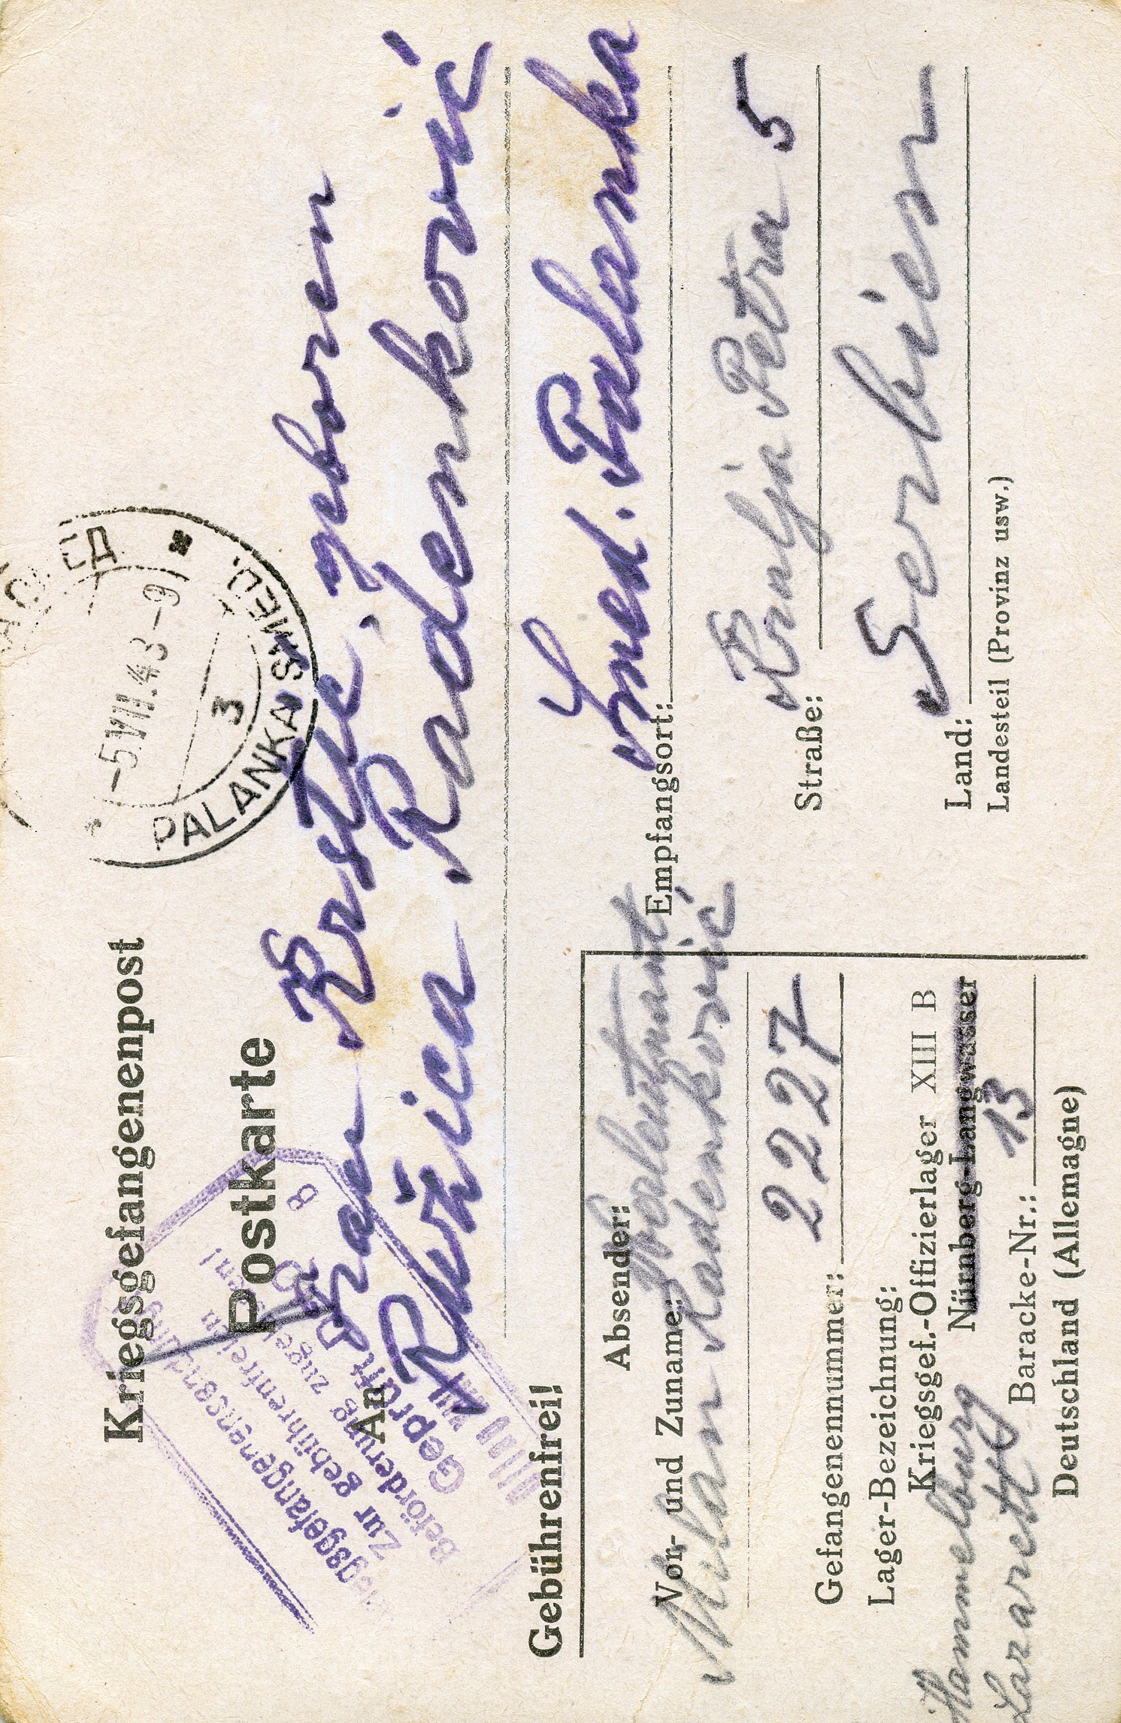 Kriegsgefangenenpost
Postkarte
-5.VII.43-9
3
PALANKA SMED.
Kriegsgefangenensendung
Zur gebührenfreien
Beförderung zugelassen!
Geprüft
8
An
Frau Krstić, geboren
Ružica Radenković
Gebührenfrei!
Empfangsort: Smed. Palanka
Straße: Kralja Petra 5
Land: Serbien
Landesteil (Provinz usw.)
Absender:
Vor- und Zuname:
Milan Radenković
Gefangenennummer: 2227
Lager-Bezeichnung:
Kriegsgef.-Offizierlager XIII B
Nürnberg-Langwasser
Hammelburg
Lazarett
Baracke-Nr.: 13
Deutschland (Allemagne)